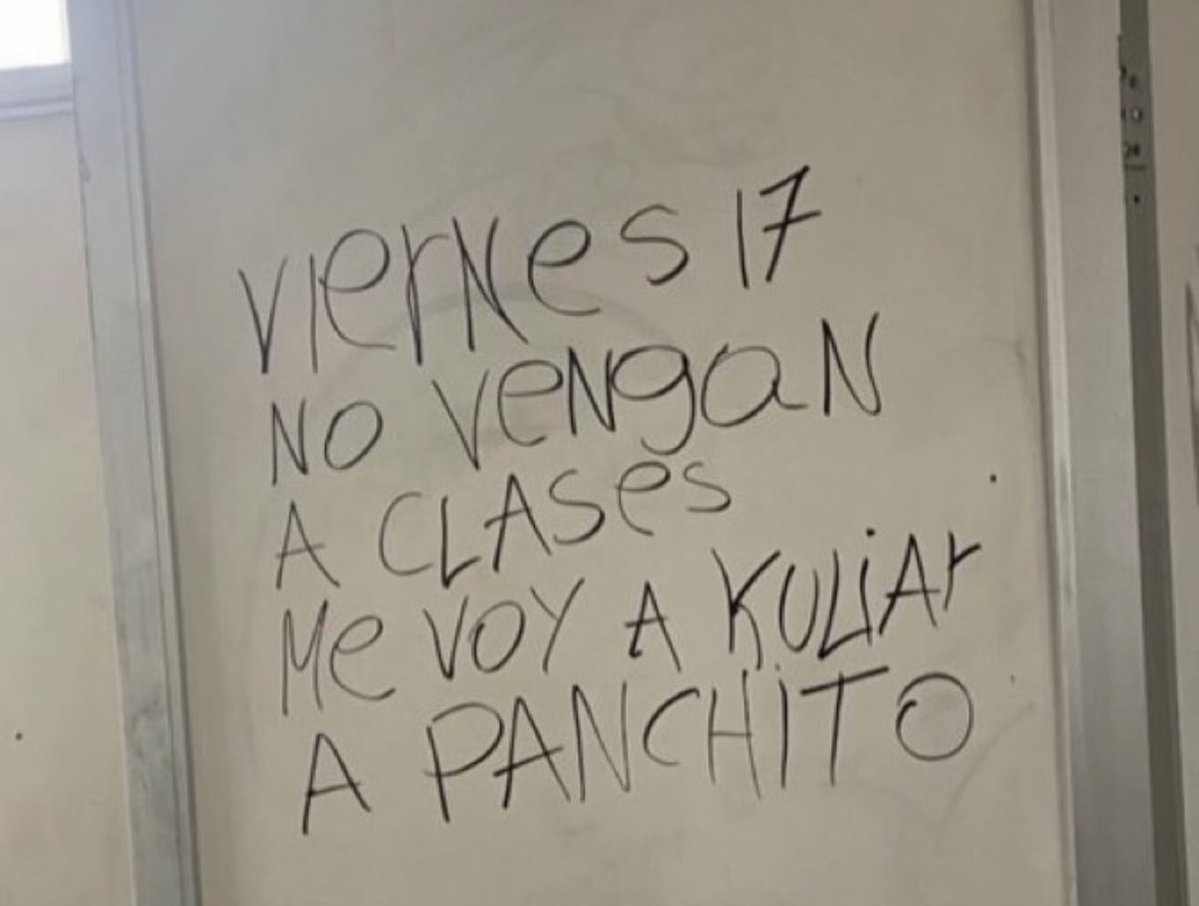 Viernes 17
NO VeNgaN
A CLASes
Me VOY A KULiAr
A PANCHiTO